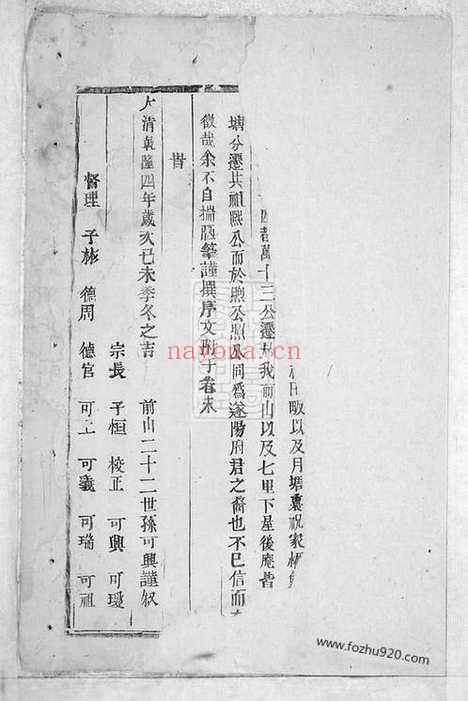 田畈以及月塘裏祝家
萬十三公遷于我前山以及七里下星後庵皆
塘分遷共祖熙公而於煦公照公同爲遂陽府君之裔也不已信而
徵哉余不自揣陋筆謹撰序文附于卷末
旹
大清乾隆四年歲次己未季冬之吉　前山二十二世孫可興謹叙
宗長　子恒　校正　可興　可璦
督理　子彬　德周　德官　可上　可羲　可瑞　可祖
nayona.cn
www.fozhu920.com